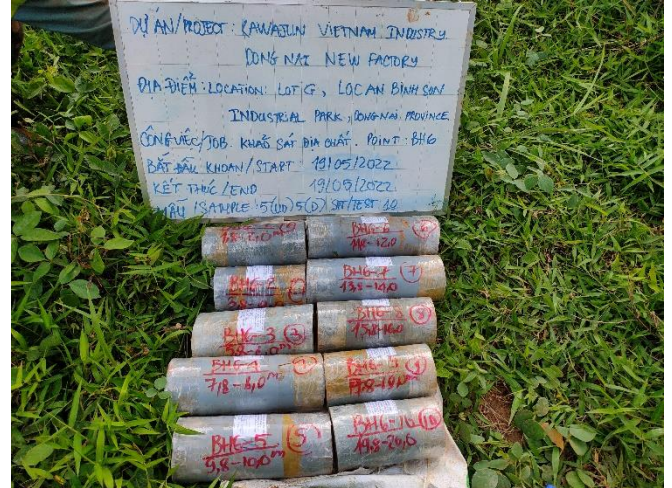 DỰ ÁN/PROJECT: KAWAJUN VIETNAM INDUSTRY
DONG NAI NEW FACTORY
ĐỊA ĐIỂM: LOCATION: LOT G, LOC AN BINH SON
INDUSTRIAL PARK, DONG NAI PROVINCE
CÔNG VIỆC/JOB. KHẢO SÁT ĐỊA CHẤT. POINT: BH6
BẮT ĐẦU KHOAN/START 19/05/2022
KẾT THÚC/END 19/05/2022
MẪU/SAMPLE: 5(UD) 5(D) SPT/TEST 10
1,8-2,0m
BH6-6 (6)
11,8-12,0
BH6-2
BH6-7 (7)
13,8-14,0
BH6-3 (3)
BH6-8 (8)
15,8-16,0
BH6-4
7,8-8,0m
BH6-9 (9)
BH6-5 (5)
9,8-10,0m
BH6-10 (10)
19,8-20,0